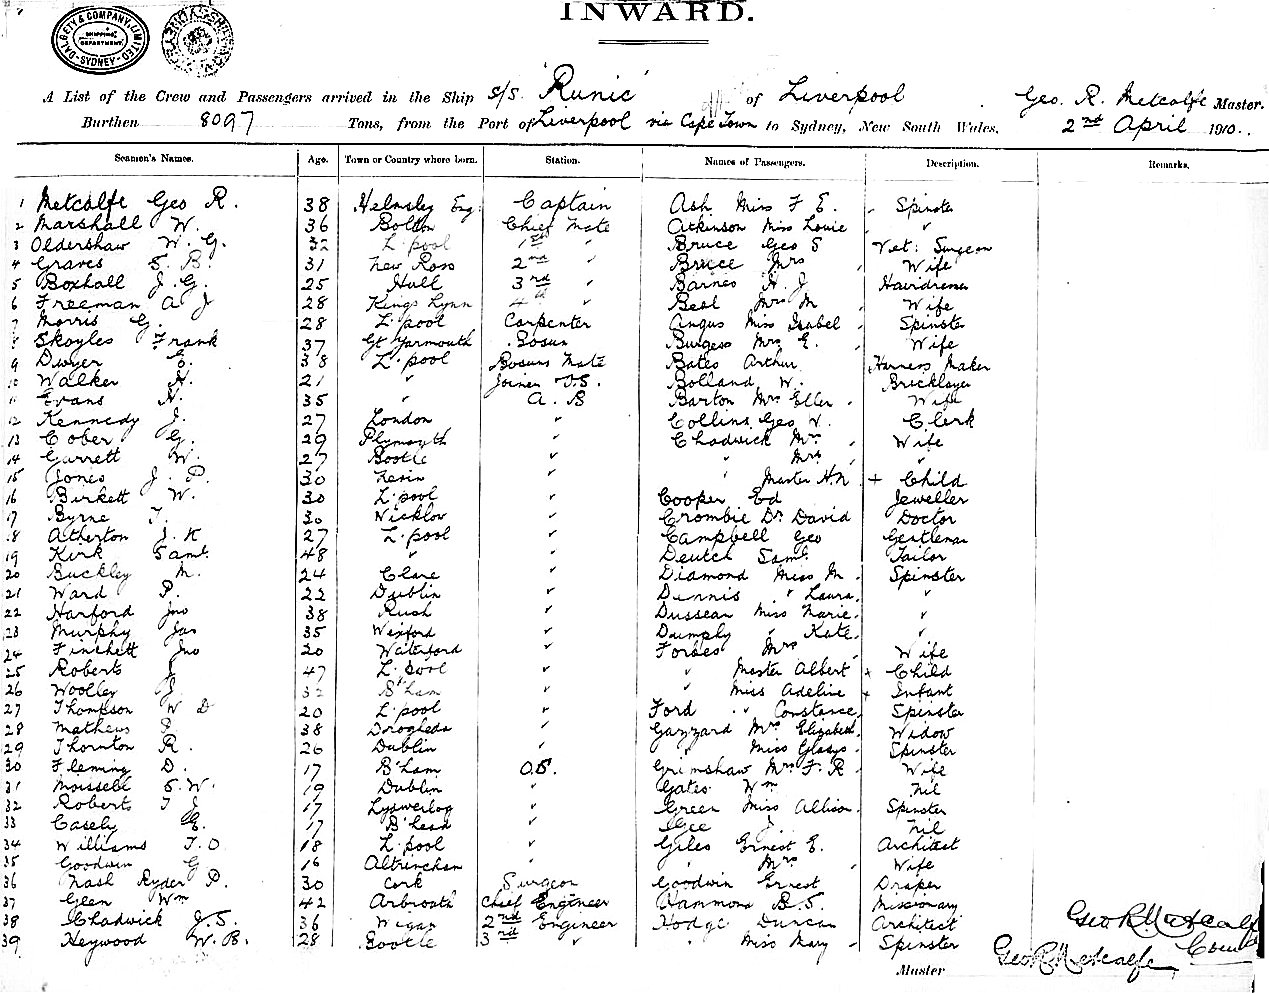 INWARD.
DALGETY & COMPANY, LIMITED SHIPPING DEPARTMENT. SYDNEY
A List of the Crew and Passengers arrived in the Ship S/S "Runic" of Liverpool Geo. R. Metcalfe Master.
Burthen 8097 Tons, from the Port of Liverpool via Cape Town to Sydney, New South Wales, 2nd April 1910.
Seamen's Names. Age. Town or Country where born. Station. Names of Passengers. Description. Remarks.
1 Metcalfe Geo R. 38 Helmsley Eng: Captain Ash Miss F E. Spinster
2 Marshall W. 36 Bolton Chief Mate Atkinson Miss Louie "
3 Oldershaw W. G. 32 L'pool 1st " Bruce Geo S Vet: Surgeon
4 Graves S. B. 31 New Ross 2nd " Bruce Mrs Wife
5 Boxhall J. G. 25 Hull 3rd " Barnes H. J Hairdresser
6 Freeman A J 28 Kings Lynn 4th " Beal Mrs M Wife
7 Morris G. 28 L'pool Carpenter Angus Miss Isabel Spinster
8 Skoyles Frank 37 Gt Yarmouth Bosun Burgess Mrs E. Wife
9 Dwyer E. 38 L'pool Bosuns Mate Bates Arthur Harness Maker
10 Walker H. 21 " Joiner O.S. Bolland W. Bricklayer
11 Evans H. 35 " A.B Barton Mrs Ellen Wife
12 Kennedy J. 27 London " Collins Geo V. Clerk
13 Cober G. 29 Plymouth " Chadwick Mrs Wife
14 Garrett W. 27 Bootle " " Mrs "
15 Jones J. P. 30 " " Master H.N + Child
16 Birkett W. 30 L'pool " Cooper Ed Jeweller
17 Byrne T. 30 Wicklow " Crombie Dr David Doctor
18 Atherton J. K 27 L'pool " Campbell Geo Gentleman
19 Kirk Saml. 48 " " Deutch Saml. Tailor
20 Buckley M. 24 Clare " Diamond Miss M. Spinster
21 Ward P. 22 Dublin " Dennis " Laura "
22 Harford Jno 38 Rush " Dusseau Miss Marie "
23 Murphy Jas 35 Wexford " Dumply " Kate "
24 Finchett Jno 20 Waterford " Forbes Mrs Wife
25 Roberts J 47 L'pool " " Master Albert + Child
26 Woolley J 32 B'ham " " Miss Adeline + Infant
27 Thompson W D 20 L'pool " Ford " Constance Spinster
28 Mathews P 38 Drogheda " Gazzard Mrs Elizabeth Widow
29 Thornton R. 26 Dublin " " Miss Gladys Spinster
30 Fleming D. 17 B'ham O.S. Grimshaw Mrs F. R Wife
31 Moissell S. W. 19 Dublin " Gates Wm Nil
32 Roberts T J 17 " Green Miss Allison Spinster
33 Casely G. 17 B'head " Gee J. Nil
34 Williams T. O 18 L'pool " Giles Ernest E. Architect
35 Goodwin G 16 Altrincham " " Mrs Wife
36 Nash Ryder P. 30 Cork Surgeon Goodwin Ernest Draper
37 Glen Wm 42 Arbroath Chief Engineer Hammond B. S. Missionary
38 Chadwick J. S. 36 Wigan 2nd Engineer Hodge Duncan Architect
39 Heywood W. B. 28 Bootle 3rd " " Miss Mary Spinster
Geo R Metcalfe
Geo R Metcalfe
Master